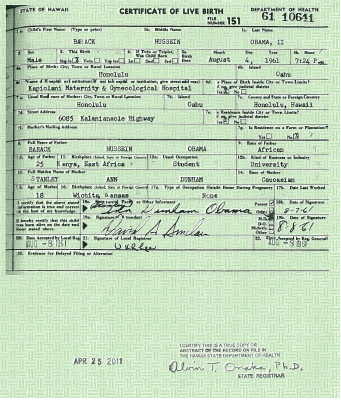 STATE OF HAWAII CERTIFICATE OF LIVE BIRTH DEPARTMENT OF HEALTH
FILE NUMBER 151 61 10641
1a. Child's First Name (Type or print) 1b. Middle Name 1c. Last Name
BARACK HUSSEIN OBAMA, II
2. Sex 3. This Birth 4. If Twin or Triplet, 5a. Birth Date Month Day Year 5b. Hour
Male Single Twin Triplet August 4, 1961 7:24 P.M.
6a. Place of Birth: City, Town or Rural Location 6b. Island
Honolulu Oahu
6c. Name of Hospital or Institution (If not in hospital or institution, give street address) 6d. Is Place of Birth Inside City or Town Limits?
Kapiolani Maternity & Gynecological Hospital
7a. Usual Residence of Mother: City, Town or Rural Location 7b. Island 7c. County and State or Foreign Country
Honolulu Oahu Honolulu, Hawaii
7d. Street Address 7e. Is Residence Inside City or Town Limits?
6085 Kalanianaole Highway
7f. Mother's Mailing Address 7g. Is Residence on a Farm or Plantation?
8. Full Name of Father 9. Race of Father
BARACK HUSSEIN OBAMA African
10. Age of Father 11. Birthplace (Island, State or Foreign Country) 12a. Usual Occupation 12b. Kind of Business or Industry
25 Kenya, East Africa Student University
13. Full Maiden Name of Mother 14. Race of Mother
STANLEY ANN DUNHAM Caucasian
15. Age of Mother 16. Birthplace (Island, State or Foreign Country) 17a. Type of Occupation Outside Home During Pregnancy 17b. Date Last Worked
18 Wichita, Kansas None
I certify that the above stated information is true and correct to the best of my knowledge. 18a. Signature of Parent or Other Informant Parent Other 18b. Date of Signature
Ann Dunham Obama 8-7-61
I hereby certify that this child was born alive on the date and hour stated above. 19a. Signature of Attendant M.D. D.O. Midwife Other 19b. Date of Signature
David A Sinclair 8-8-61
20. Date Accepted by Local Reg. 21. Signature of Local Registrar 22. Date Accepted by Reg. General
AUG -8 1961 U K L Lee AUG -8 1961
23. Evidence for Delayed Filing or Alteration
APR 25 2011
I CERTIFY THIS IS A TRUE COPY OR
ABSTRACT OF THE RECORD ON FILE IN
THE HAWAII STATE DEPARTMENT OF HEALTH
Alvin T. Onaka, Ph.D.
STATE REGISTRAR